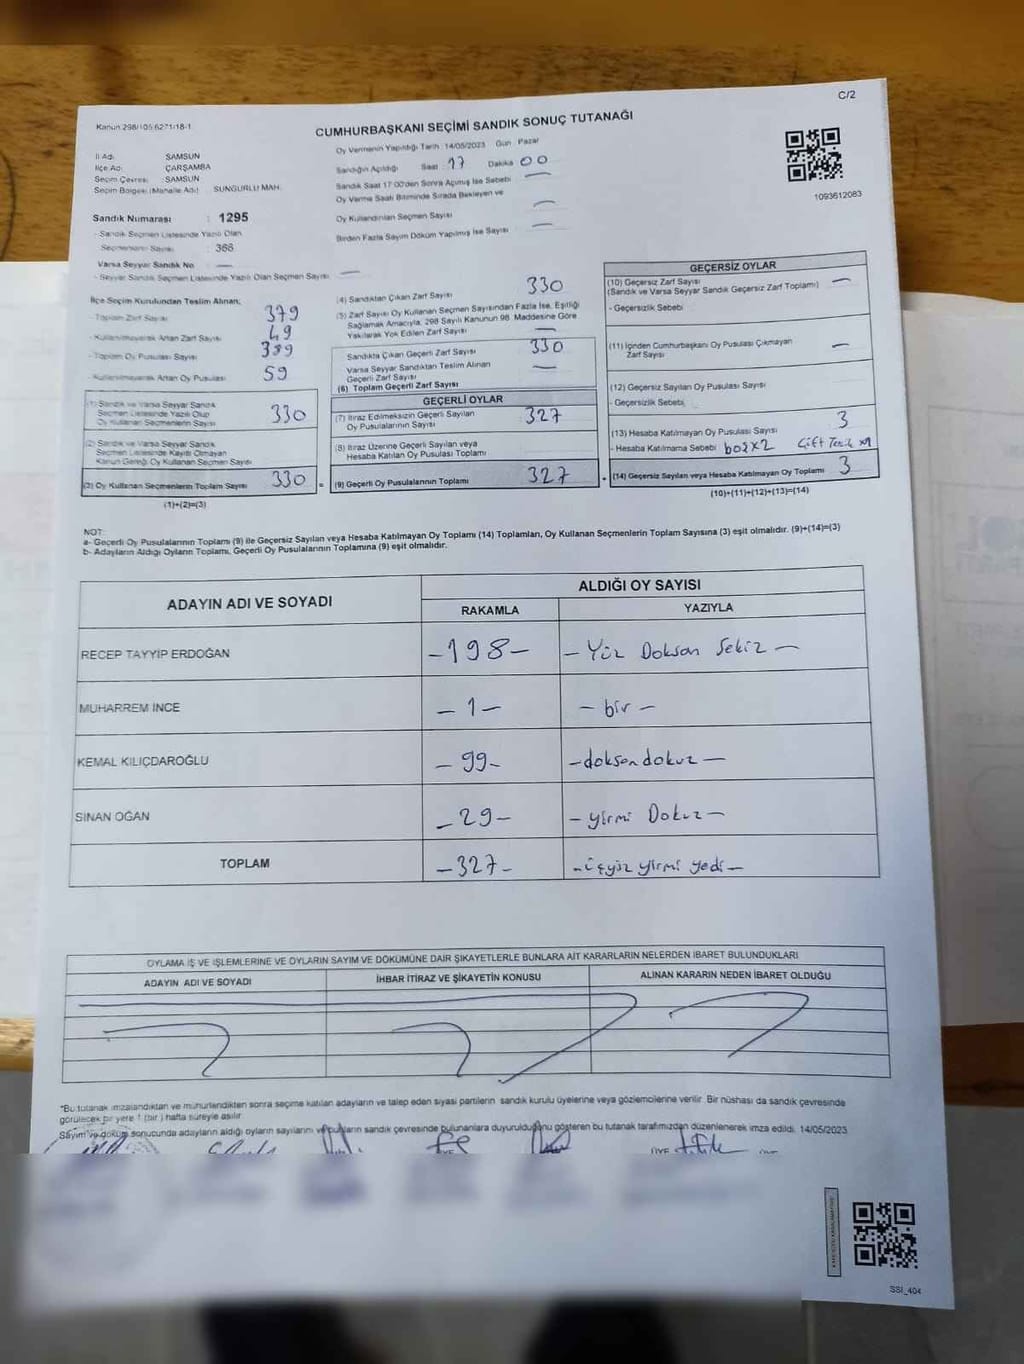 C/2
Kanun 298/105 6271/18-1
CUMHURBAŞKANI SEÇİMİ SANDIK SONUÇ TUTANAĞI
Oy Vermenin Yapıldığı Tarih 14/05/2023 Gün Pazar
İl Adı SAMSUN
İlçe Adı ÇARŞAMBA
Seçim Çevresi SAMSUN
Seçim Bölgesi (Mahalle Adı) SUNGURLU MAH.
Sandığın Açıldığı Saat 17 Dakika 00
Sandık Saat 17:00'den Sonra Açılmış İse Sebebi
Oy Verme Saati Bitiminde Sırada Bekleyen ve
Oy Kullandırılan Seçmen Sayısı
Birden Fazla Sayım Döküm Yapılmış İse Sayısı
1093612083
Sandık Numarası : 1295
- Sandık Seçmen Listesinde Yazılı Olan
Seçmenlerin Sayısı : 366
Varsa Seyyar Sandık No
- Seyyar Sandık Seçmen Listesinde Yazılı Olan Seçmen Sayısı
İlçe Seçim Kurulundan Teslim Alınan;
- Toplam Zarf Sayısı 379
- Kullanılmayarak Artan Zarf Sayısı 49
- Toplam Oy Pusulası Sayısı 389
- Kullanılmayarak Artan Oy Pusulası 59
(1) Sandık ve Varsa Seyyar Sandık
Seçmen Listesinde Yazılı Olup
Oy Kullanan Seçmenlerin Sayısı 330
(2) Sandık ve Varsa Seyyar Sandık
Seçmen Listesinde Kaydı Olmayan
Kanun Gereği Oy Kullanan Seçmen Sayısı
(3) Oy Kullanan Seçmenlerin Toplam Sayısı 330
(1)+(2)=(3)
(4) Sandıktan Çıkan Zarf Sayısı 330
(5) Zarf Sayısı Oy Kullanan Seçmen Sayısından Fazla İse, Eşitliği
Sağlamak Amacıyla, 298 Sayılı Kanunun 98. Maddesine Göre
Yakılarak Yok Edilen Zarf Sayısı
Sandıkta Çıkan Geçerli Zarf Sayısı 330
Varsa Seyyar Sandıktan Teslim Alınan
Geçerli Zarf Sayısı
(6) Toplam Geçerli Zarf Sayısı
GEÇERLİ OYLAR
(7) İtiraz Edilmeksizin Geçerli Sayılan
Oy Pusulalarının Sayısı 327
(8) İtiraz Üzerine Geçerli Sayılan veya
Hesaba Katılan Oy Pusulası Toplamı
= (9) Geçerli Oy Pusulalarının Toplamı 327
GEÇERSİZ OYLAR
(10) Geçersiz Zarf Sayısı
(Sandık ve Varsa Seyyar Sandık Geçersiz Zarf Toplamı)
- Geçersizlik Sebebi
(11) İçinden Cumhurbaşkanı Oy Pusulası Çıkmayan
Zarf Sayısı
(12) Geçersiz Sayılan Oy Pusulası Sayısı
- Geçersizlik Sebebi
(13) Hesaba Katılmayan Oy Pusulası Sayısı 3
- Hesaba Katılmama Sebebi boş x2 Çift
+ (14) Geçersiz Sayılan veya Hesaba Katılmayan Oy Toplamı 3
(10)+(11)+(12)+(13)=(14)
NOT:
a- Geçerli Oy Pusulalarının Toplamı (9) ile Geçersiz Sayılan veya Hesaba Katılmayan Oy Toplamı (14) Toplamları, Oy Kullanan Seçmenlerin Toplam Sayısına (3) eşit olmalıdır. (9)+(14)=(3)
b- Adayların Aldığı Oyların Toplamı, Geçerli Oy Pusulalarının Toplamına (9) eşit olmalıdır.
ADAYIN ADI VE SOYADI
ALDIĞI OY SAYISI
RAKAMLA YAZIYLA
RECEP TAYYİP ERDOĞAN -198- - Yüz Doksan Sekiz -
MUHARREM İNCE - 1 - - bir -
KEMAL KILIÇDAROĞLU - 99- -doksandokuz -
SİNAN OĞAN - 29 - - yirmi Dokuz -
TOPLAM -327- - üçyüz yirmi yedi -
OYLAMA İŞ VE İŞLEMLERİNE VE OYLARIN SAYIM VE DÖKÜMÜNE DAİR ŞİKAYETLERLE BUNLARA AİT KARARLARIN NELERDEN İBARET BULUNDUKLARI
ADAYIN ADI VE SOYADI İHBAR İTİRAZ VE ŞİKAYETİN KONUSU ALINAN KARARIN NEDEN İBARET OLDUĞU
*Bu tutanak imzalandıktan ve mühürlendikten sonra seçime katılan adayların ve talep eden siyasi partilerin sandık kurulu üyelerine veya gözlemcilerine verilir. Bir nüshası da sandık çevresinde
görülecek bir yere 1 (bir) hafta süreyle asılır.
Sayım ve döküm sonucunda adayların aldığı oyların sayılarını ve bunların sandık çevresinde bulunanlara duyurulduğunu gösteren bu tutanak tarafımızdan düzenlenerek imza edildi. 14/05/2023
ÜYE ÜYE
SSİ_404